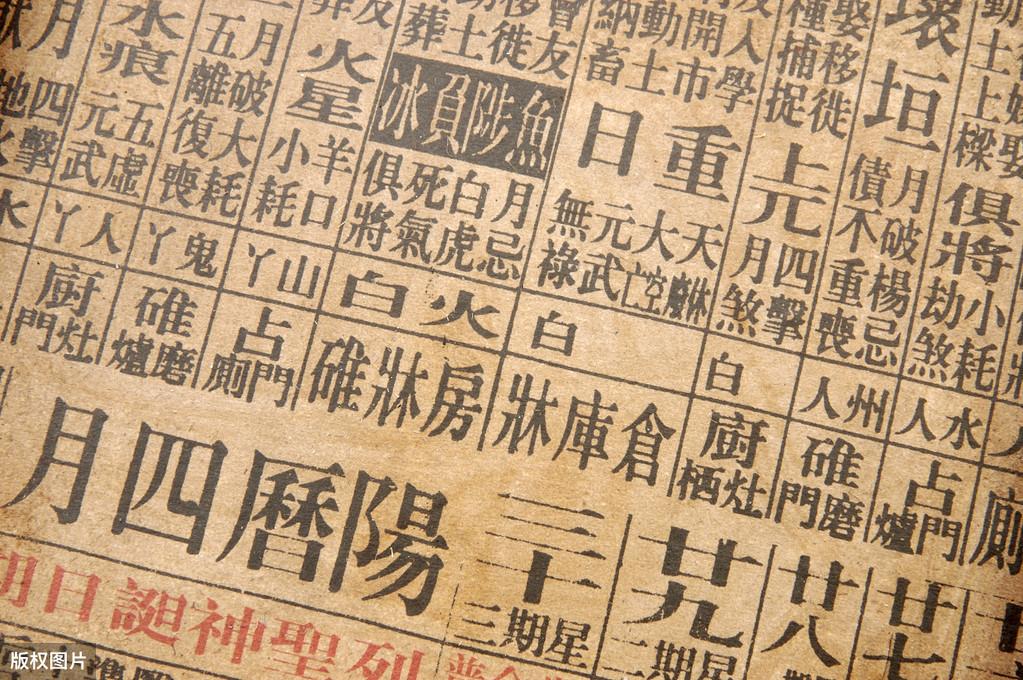 動土上樑
俱將
小耗
劫煞
壞垣
月破楊忌
債不重喪
娶移徙
種捕捉
上兀
四擊
月煞
人學
開市
動土
納畜
重日
天
大空亡
元武
無祿
會友
移徙
土
葬
魚陟負冰
月忌
白虎
死氣
俱將
友
火星
羊口
小耗
月破大耗
五離復喪
水痕
五虛
元武
月
四擊
地火
水人
州人
白
白
火白
山丫
鬼丫
人丫
水
廁
占門爐
碓磨門
廚灶栖
倉庫牀
房牀碓
占門廁
碓磨爐
廚灶門
廿七
廿八
廿九
星期二
三十
星期三
陽曆四月
列聖神誕日期
版权图片